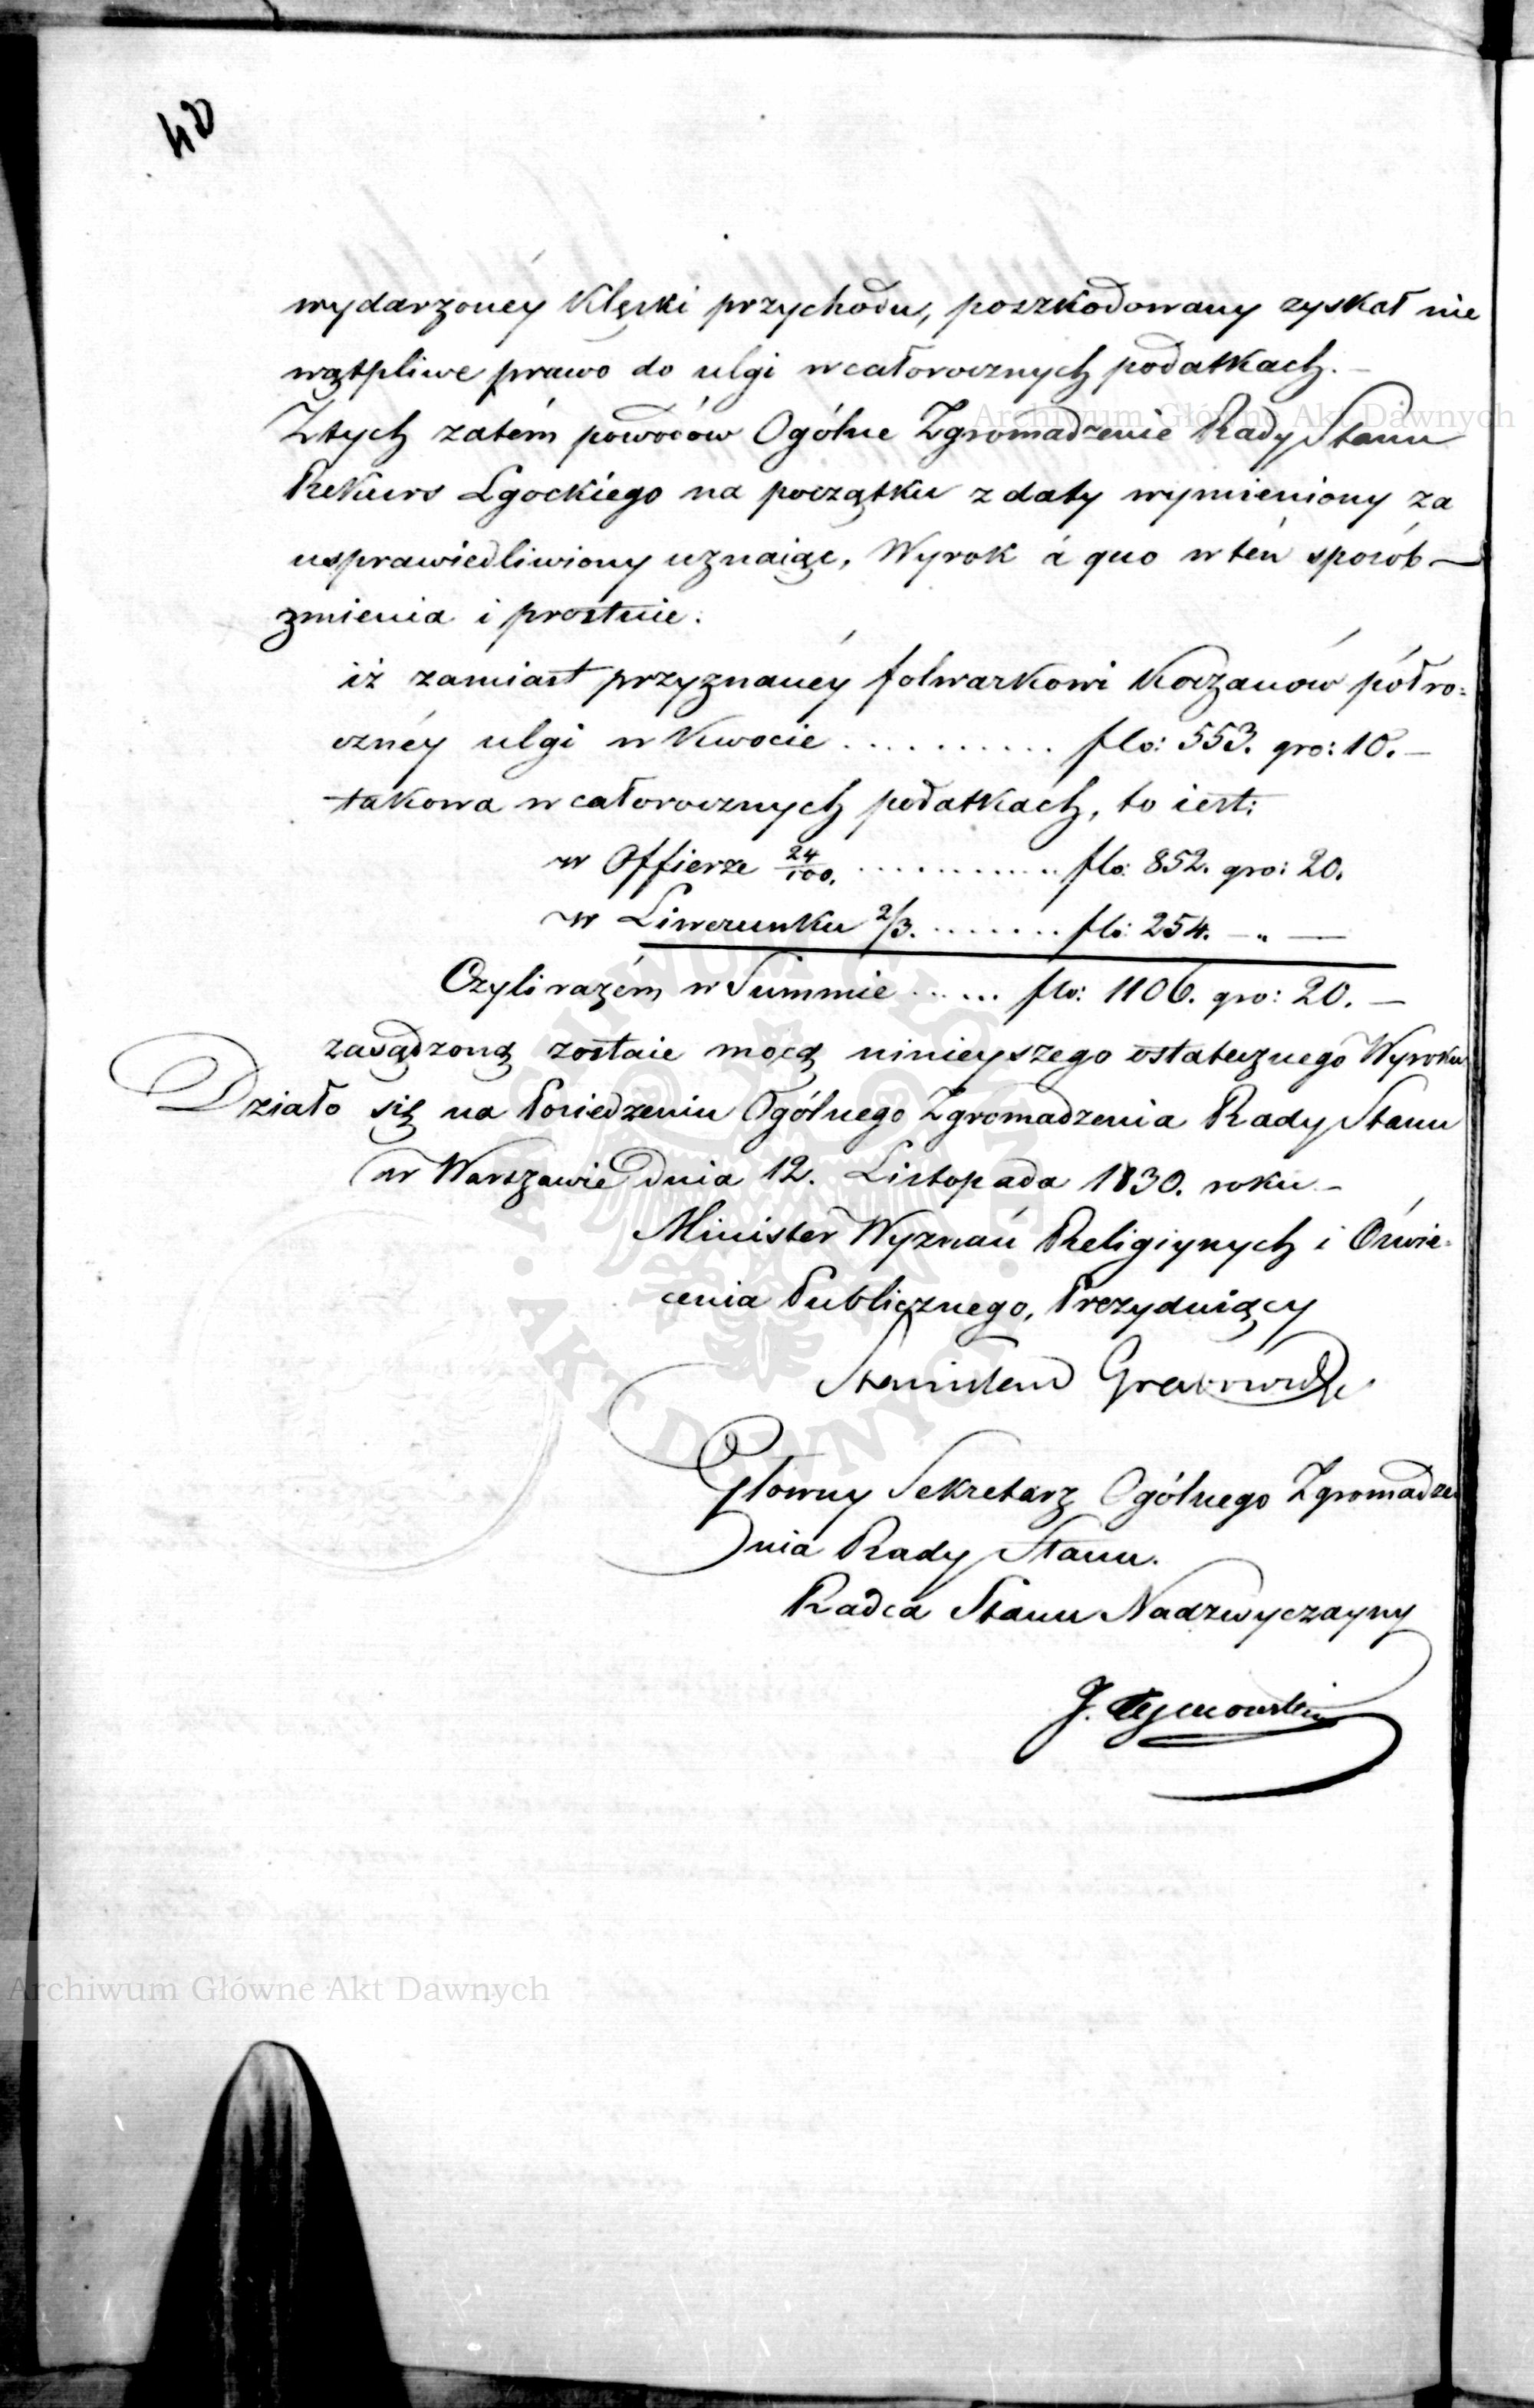 40
wydarzonéy klęski przychodu, poszkodowany zyskał nie
wątpliwe prawo do ulgi w całorocznych podatkach. –
Archiwum Główne Akt Dawnych
Z tych zatém powodów Ogólne Zgromadzenie Rady Stanu
Rekurs Lgockiego na początku z daty wymieniony za
usprawiedliwiony uznaiąc, Wyrok à quo w ten sposób –
zmienia i prostuie:
iż zamiast przyznanéy folwarkowi Koczanów półro=
cznéy ulgi w kwocie .......... flo: 553. gro: 10. –
takowa w całorocznych podatkach, to iest:
w Offierze 24/100. ............ flo: 852. gro: 20.
w Liwerunku 2/3. ........ flo: 254. – „ –
Czyli razém w Summie ...... flo: 1106. gro: 20. –
zasądzoną zostaie mocą ninieyszego ostatecznego Wyroku
Działo się na Posiedzeniu Ogólnego Zgromadzenia Rady Stanu
w Warszawie dnia 12. Listopada 1830. roku –
Minister Wyznań Religiynych i Oświe=
cenia Publicznego, Prezyduiący
Stanisław Grabowski
Główny Sekretarz Ogólnego Zgromadze
nia Rady Stanu.
Radca Stanu Nadzwyczayny
J. Tymowski
ARCHIWUM GŁÓWNE
AKT DAWNYCH
Archiwum Główne Akt Dawnych